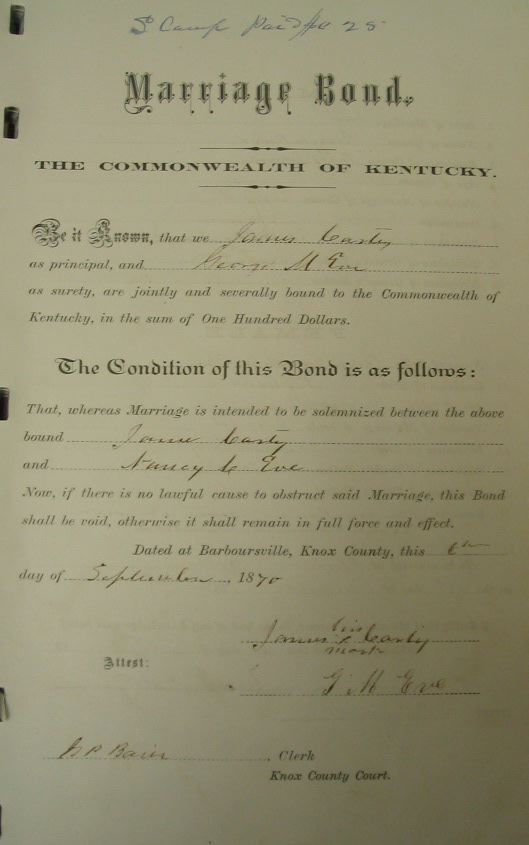 Stamp Paid 25
Marriage Bond.
THE COMMONWEALTH OF KENTUCKY.
Be it Known, that we James Carty
as principal, and George M Eve
as surety, are jointly and severally bound to the Commonwealth of
Kentucky, in the sum of One Hundred Dollars.
The Condition of this Bond is as follows:
That, whereas Marriage is intended to be solemnized between the above
bound James Carty
and Nancy C Eve
Now, if there is no lawful cause to obstruct said Marriage, this Bond
shall be void, otherwise it shall remain in full force and effect.
Dated at Barboursville, Knox County, this 6th
day of September, 1870
his
James x Carty
mark
Attest:
G M Eve
Clerk
Knox County Court.